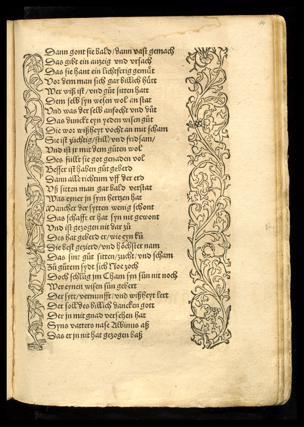 Dann gont sie bald/ dann vast gemach
Das gibt ein anzeig vnd vrsach
Das sie hant ein lichtferig gemüt
Vor dem man sich gar billich hüt
Wer wiß ist/ vnd güt sitten hatt
Dem selb syn wesen wol an stat
Vnd was der selb anfocht vnd düt
Das dunckt eyn yeden wisen güt
Die wor wißheyt vocht an mit scham
Sie ist züchtig/ still/ vnd fridsam/
Vnd ist jr mit dem güten wol
Des füllt sie got genaden vol
Besser ist haben güt geberd
Dann all richtum vff der erd
Vß sitten man gar bald verstat
Was eyner jn sym hertzen hat
Mancher der sytten wenig schont
Das schafft er hat syn nit gewont
Vnd ist gezogen nit dar zü
Des hat geberd er/ wie eyn kü
Die best gezierd/ vnd höchster nam
Das sint güt sitten/ zucht/ vnd scham
Zü gütem sydt sich Noe zoch
Doch schlüg jm Cham syn sün nit noch
Wer eynen wisen sün gebert
Der sitt/ vernunfft/ vnd wißheyt lert
Der soll des billich dancken gott
Der jn mit gnad versehen hat
Syns vatters nase Albinus aß
Das er jn nit hat gezogen baß